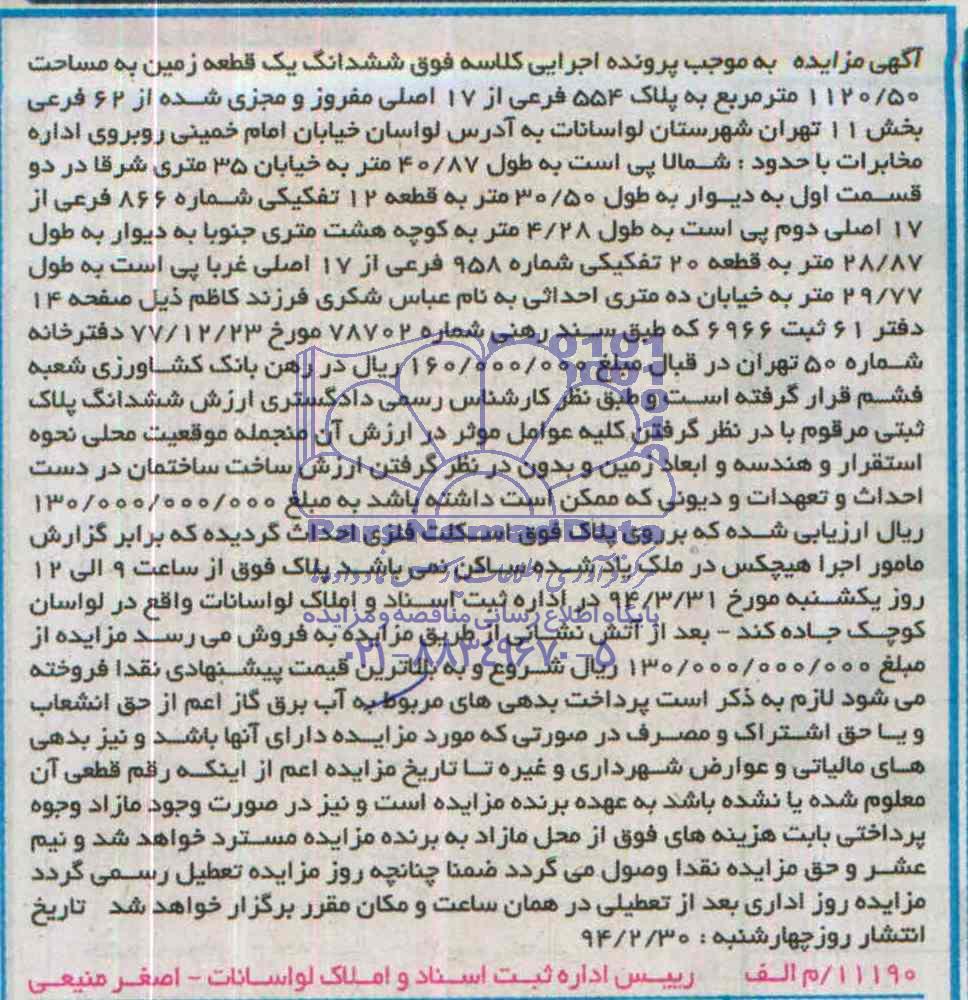 آگهی مزایده به موجب پرونده اجرایی کلاسه فوق ششدانگ یک قطعه زمین به مساحت
۱۱۲۰/۵۰ مترمربع به پلاک ۵۵۴ فرعی از ۱۷ اصلی مفروز و مجزی شده از ۶۲ فرعی
بخش ۱۱ تهران شهرستان لواسانات به آدرس لواسان خیابان امام خمینی روبروی اداره
مخابرات با حدود : شمالا پی است به طول ۴۰/۸۷ متر به خیابان ۳۵ متری شرقا در دو
قسمت اول به دیوار به طول ۳۰/۵۰ متر به قطعه ۱۲ تفکیکی شماره ۸۶۶ فرعی از
۱۷ اصلی دوم پی است به طول ۴/۲۸ متر به کوچه هشت متری جنوبا به دیوار به طول
۲۸/۸۷ متر به قطعه ۲۰ تفکیکی شماره ۹۵۸ فرعی از ۱۷ اصلی غربا پی است به طول
۲۹/۷۷ متر به خیابان ده متری احداثی به نام عباس شکری فرزند کاظم ذیل صفحه ۱۴
دفتر ۶۱ ثبت ۶۹۶۶ که طبق سند رهنی شماره ۷۸۷۰۲ مورخ ۷۷/۱۲/۲۳ دفترخانه
شماره ۵۰ تهران در قبال مبلغ ۱۶۰/۰۰۰/۰۰۰ ریال در رهن بانک کشاورزی شعبه
فشم قرار گرفته است و طبق نظر کارشناس رسمی دادگستری ارزش ششدانگ پلاک
ثبتی مرقوم با در نظر گرفتن کلیه عوامل موثر در ارزش آن منجمله موقعیت محلی نحوه
استقرار و هندسه و ابعاد زمین و بدون در نظر گرفتن ارزش ساخت ساختمان در دست
احداث و تعهدات و دیونی که ممکن است داشته باشد به مبلغ ۱۳۰/۰۰۰/۰۰۰/۰۰۰
ریال ارزیابی شده که برروی پلاک فوق اسکلت فلزی احداث گردیده که برابر گزارش
مامور اجرا هیچکس در ملک یاد شده ساکن نمی باشد پلاک فوق از ساعت ۹ الی ۱۲
روز یکشنبه مورخ ۹۴/۳/۳۱ در اداره ثبت اسناد و املاک لواسانات واقع در لواسان
کوچک جاده کند - بعد از آتش نشانی از طریق مزایده به فروش می رسد مزایده از
مبلغ ۱۳۰/۰۰۰/۰۰۰/۰۰۰ ریال شروع و به بالاترین قیمت پیشنهادی نقدا فروخته
می شود لازم به ذکر است پرداخت بدهی های مربوط به آب برق گاز اعم از حق انشعاب
و یا حق اشتراک و مصرف در صورتی که مورد مزایده دارای آنها باشد و نیز بدهی
های مالیاتی و عوارض شهرداری و غیره تا تاریخ مزایده اعم از اینکه رقم قطعی آن
معلوم شده یا نشده باشد به عهده برنده مزایده است و نیز در صورت وجود مازاد وجوه
پرداختی بابت هزینه های فوق از محل مازاد به برنده مزایده مسترد خواهد شد و نیم
عشر و حق مزایده نقدا وصول می گردد ضمنا چنانچه روز مزایده تعطیل رسمی گردد
مزایده روز اداری بعد از تعطیلی در همان ساعت و مکان مقرر برگزار خواهد شد تاریخ
انتشار روزچهارشنبه : ۹۴/۲/۳۰
۱۱۱۹۰/م الف رییس اداره ثبت اسناد و املاک لواسانات - اصغر منیعی
ParsNamadData
پایگاه اطلاع رسانی مناقصه و مزایده
۰۲۱-۸۸۳۴۹۶۷۰-۵